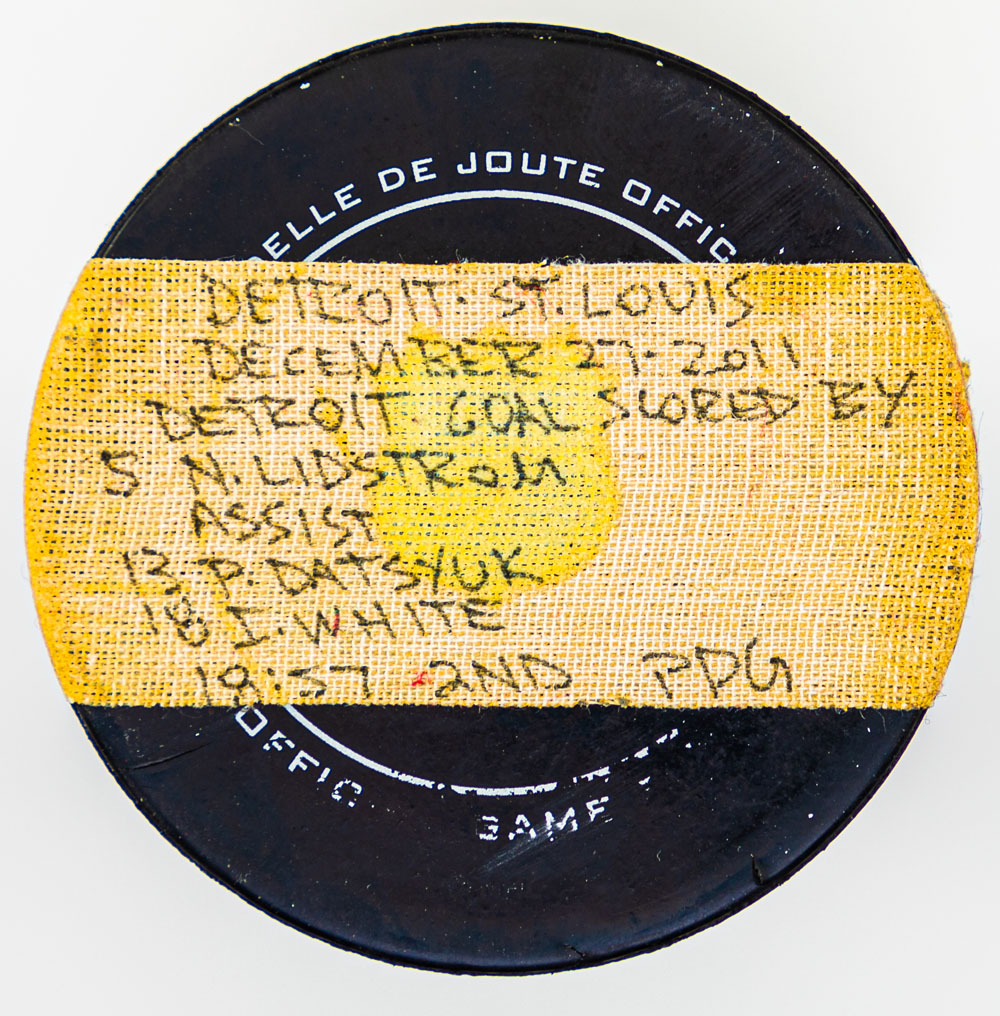 ELLE DE JOUTE OFFIC
DETROIT. ST. LOUIS
DECEMBER 27. 2011
DETROIT GOAL SCORED BY
5 N. LIDSTROM
ASSIST
13 P. DATSYUK
18 I. WHITE
19:57 2ND PDG
OFFIC
GAME